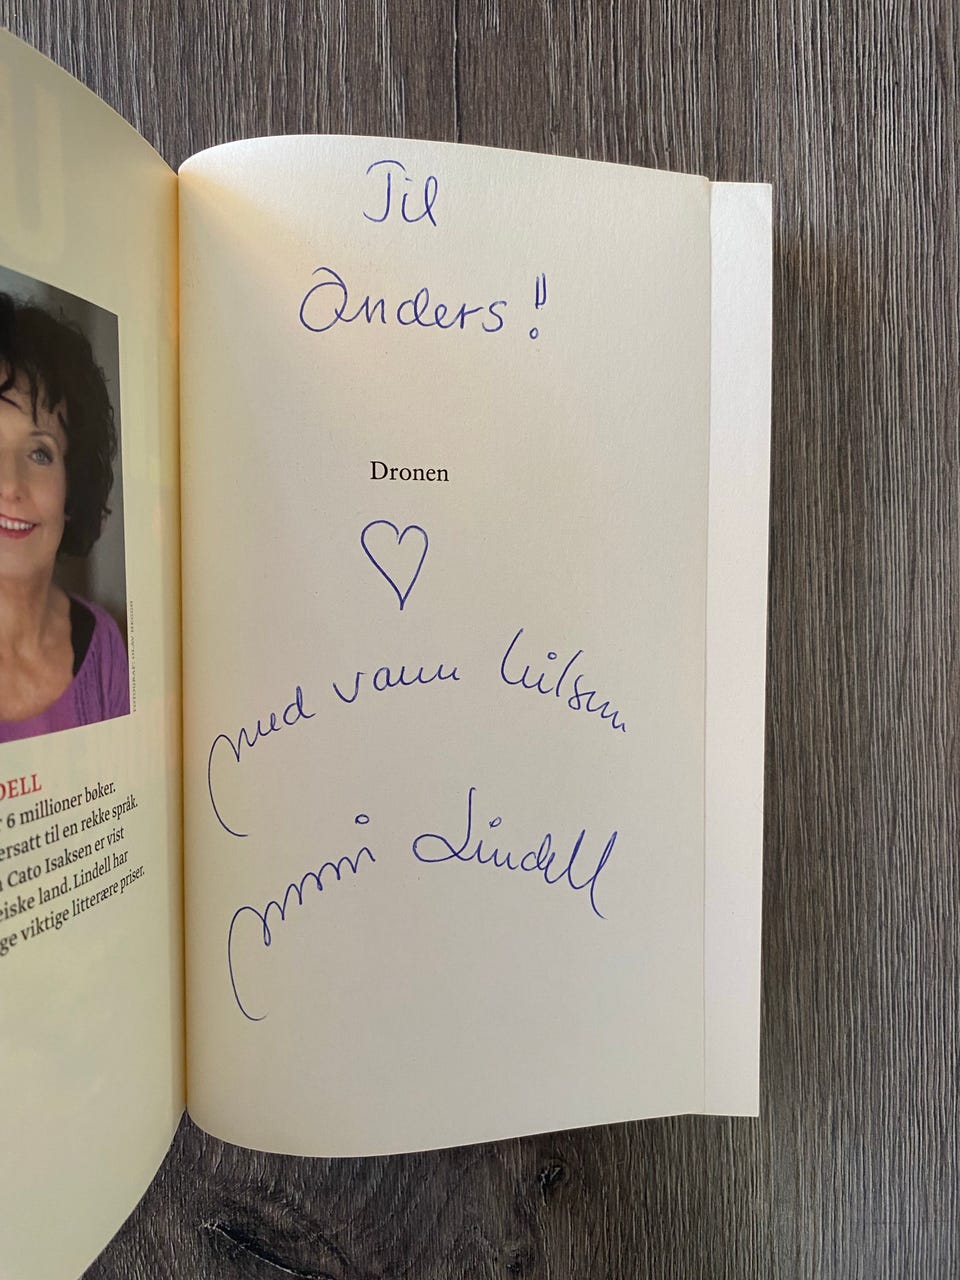 DELL
6 millioner bøker.
ersatt til en rekke språk.
Cato Isaksen er vist
eiske land. Lindell har
ge viktige litterære priser.
FOTOGRAF: OLAV HEGGØ
Til
Anders!!
Dronen
med varm hilsen
Unni Lindell